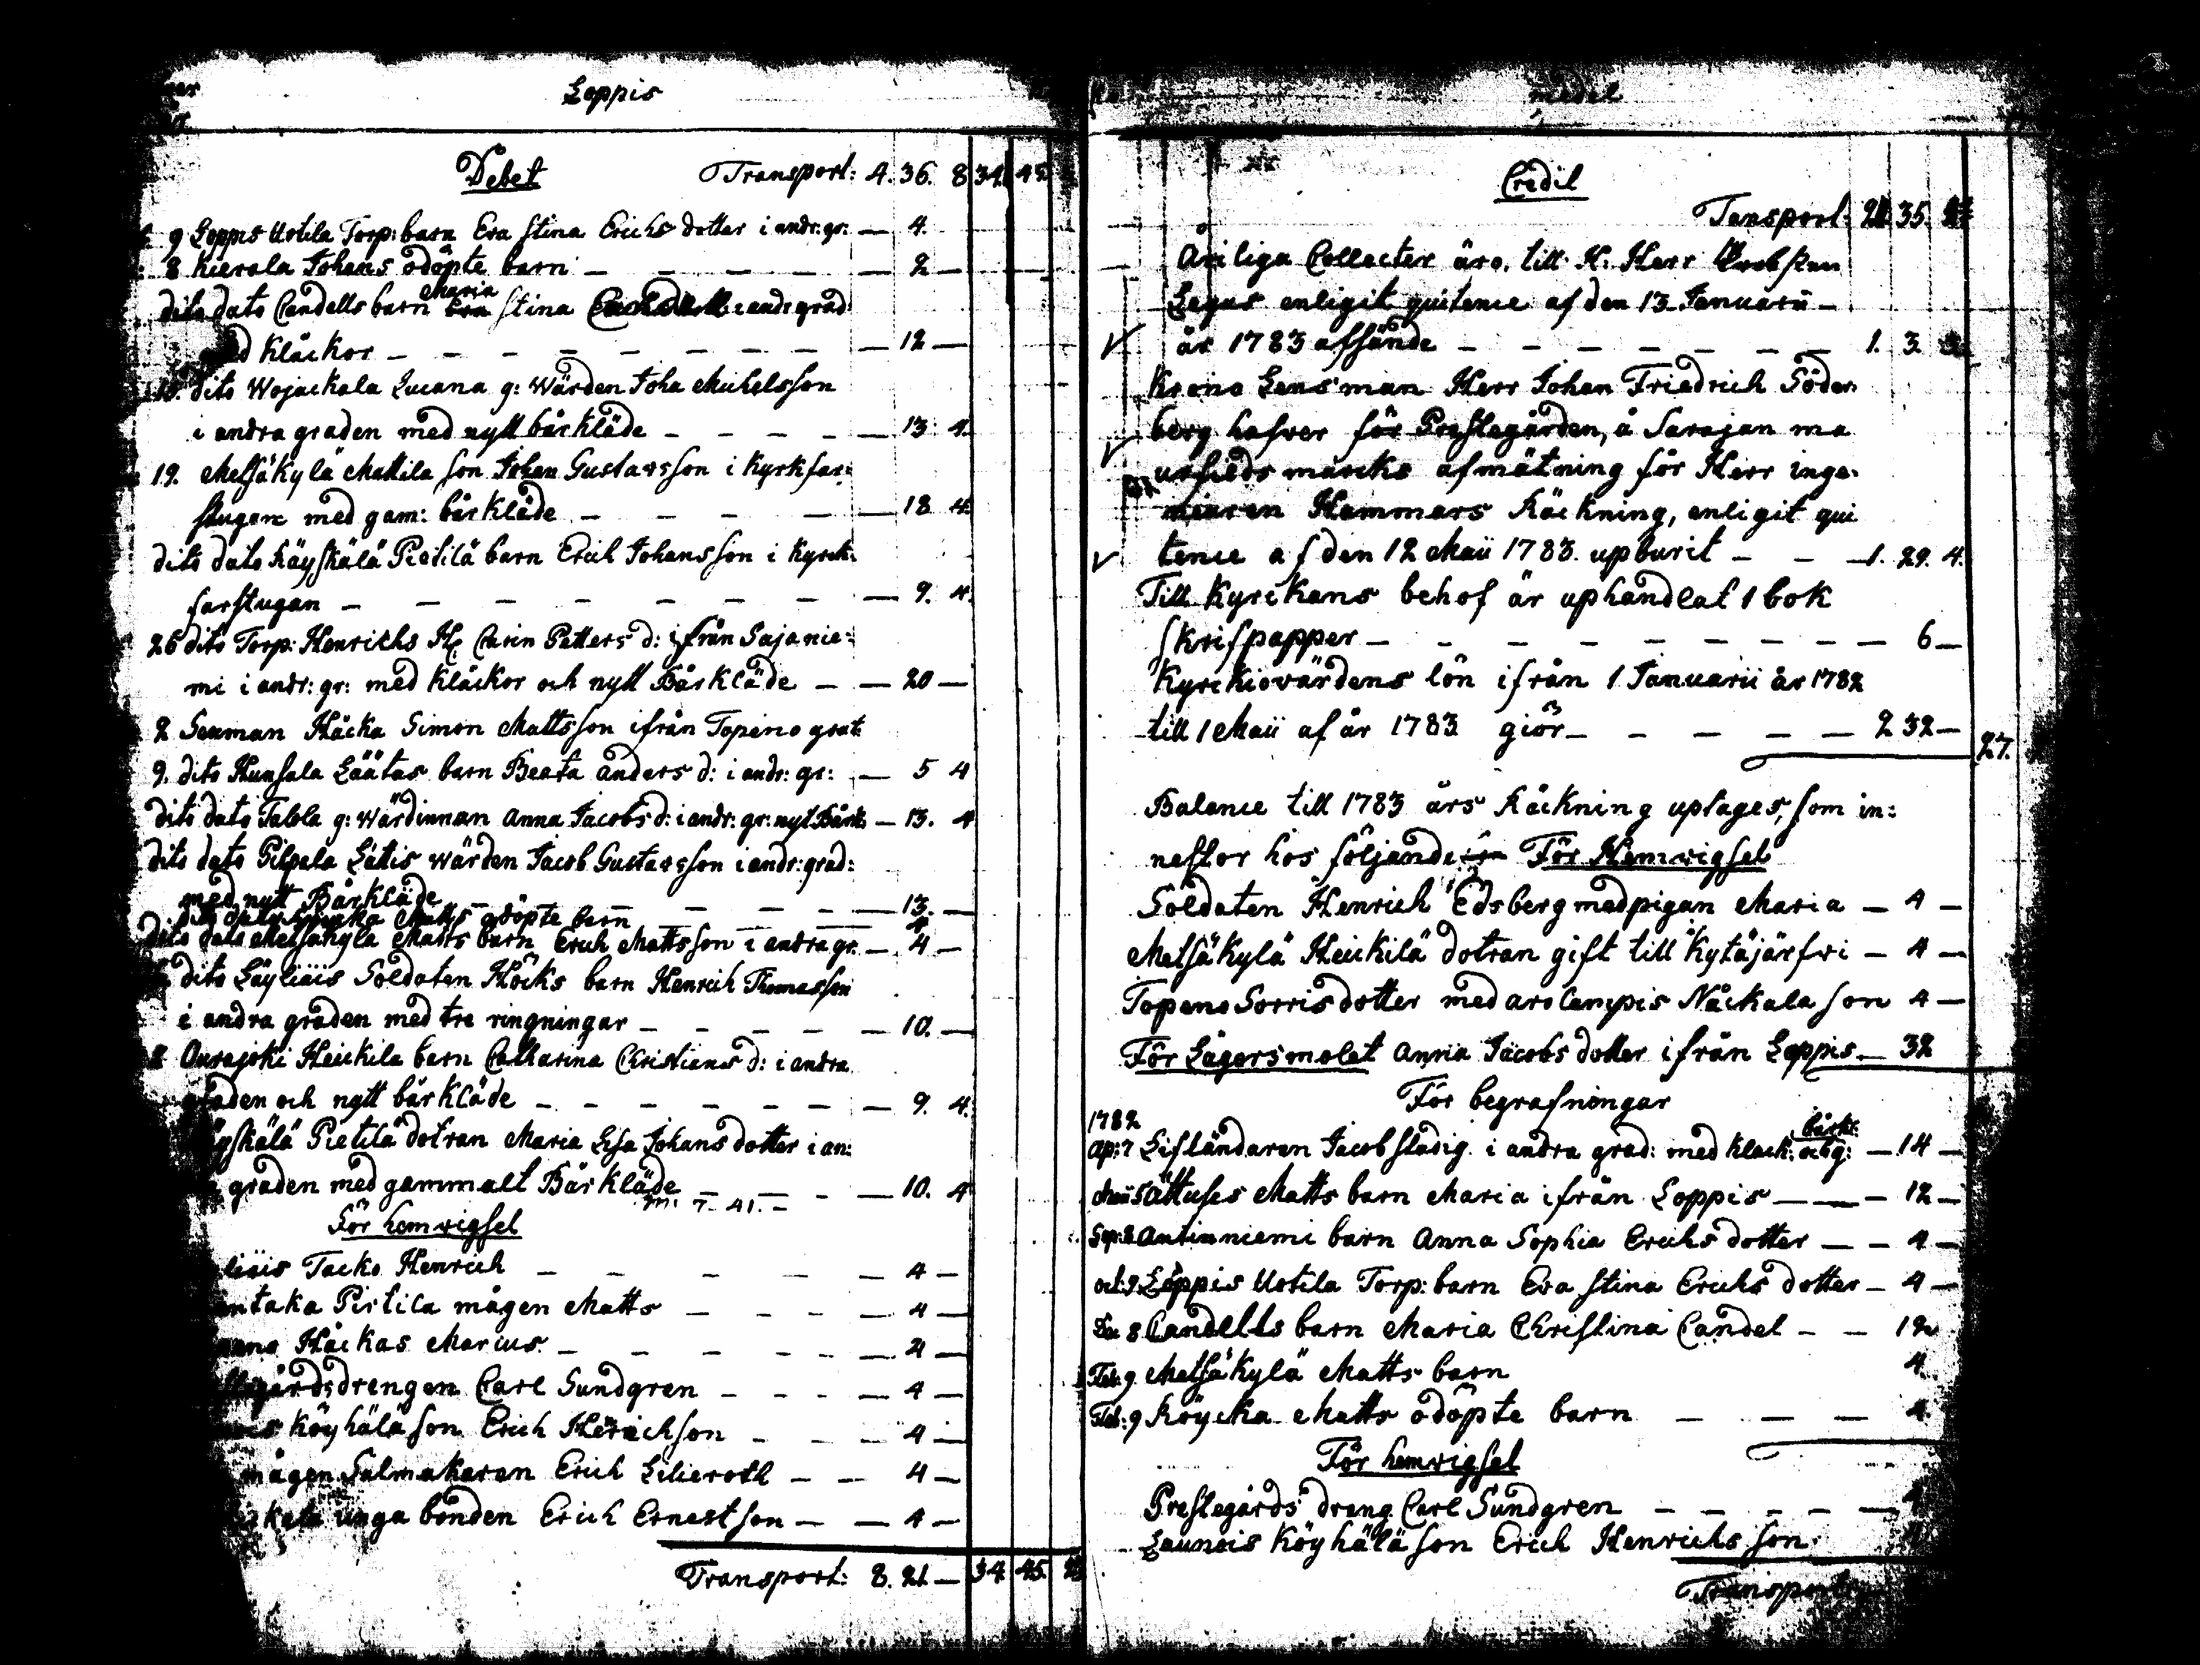 Loppis
Debet Transport: 4. 36. 8 34. 45.
9 Loppis Uotila Torp: barn Eva Stina Erichs dotter i andr: gr: — 4.
8 Kierola Johans odöpte barn — 2 —
dito dato Candells barn Maria Stina i andr grad
med Klåckor — 12 —
dito Wojackala Lucana g: Wärden Joha Michelsson
i andra graden med nytt bårkläde — 13. 4.
19. Metsäkylä Mattila son Johan Gustavsson i Kyrkfar:
stugan med gam: bårkläde — 18 4.
dito dato Räyskälä Pietilä barn Erich Johansson i Kyrck:
farstugan — 9. 4.
26 dito Torp: Henrichs H: Carin Petters d: ifrån Sajanie:
mi i andr: gr: med Klåckor och nytt Bårkläde — 20 —
2 Seuman Håcka Simon Mattsson ifrån Topeno grat
9. dito Hunsala Läätas barn Beata anders d: i andr: gr: — 5 4
dito dato Talola g: Wärdinnan Anna Jacobs d: i andr: gr: nyt Bårk: — 13. 4
dito dato Pilpala Lätis Wärden Jacob Gustavsson i andr: grad:
med nytt Bårkläde — 13. —
dito dato Köycka Matts odöpte barn — 4
dito dato Metsäkylä Matts barn Erich Mattsson i andra gr. — 4 —
dito Läyliäis Soldaten Höcks barn Henrich Thomasson
i andra graden med tre ringningar — 10. —
8 Ourajoki Heickila barn Catharina Christians d: i andra
graden och nytt bårkläde — 9. 4.
yskälä Pietilä dotran Maria Lisa Johans dotter i an:
graden med gammalt Bårkläde — 10. 4
För hemwigsel
liäis Tacko Henrich — 4 —
ntaka Pirtilä mågen Matts — 4 —
Håckas Marcus — 4 —
gårdsdrengen Carl Sundgren — 4 —
Köyhälä son Erich Henrichson — 4 —
mågen Salmakaren Erich Lilieroth — 4 —
unga bonden Erich Ernestson — 4 —
Transport: 8. 21 — 34. 45.
medel
Credit
Transport: 35.
Årliga Collecter äro till H: Herr Probsten
Legus enligit quitence af den 13 Januarii
år 1783 afsände — 1. 3.
Krono Lensman Herr Johan Friedrich Söder
berg hafver för Prestegården, å Sarajan ma
marcks afmätning för Herr inge:
Hammars Räckning, enligit qui
tence af den 12 Maii 1783. upburit — 1. 29. 4.
Till Kyrckans behof är uphandlat 1 bok
Skrifpapper — 6 —
Kyrckiovärdens lön ifrån 1 Januarii år 1782
till 1 Maii af år 1783 giör — 2 32 —
27.
Balance till 1783 års Räckning uptages, som in:
nestor hos följande För Hemwigsel
Soldaten Henrich Edsberg med pigan Maria — 4 —
Metsäkylä Heickilä dotran gift till Kytäjärfvi — 4 —
Topeno Sorris dotter med aro Campis Nåckala son 4 —
För Lägersmolet Anna Jacobs dotter ifrån Loppis — 32
För begrafningar
1782
Ap: 7 Lifländaren Jacob stadig i andra grad: med klack: och g: bårk: — 14 —
Maii 5 Ättuses Matts barn Maria ifrån Loppis — 12 —
Sep: 8 Antinniemi barn Anna Sophia Erichs dotter — 4 —
oct: 9 Loppis Uotila Torp: barn Eva Stina Erichs dotter — 4 —
De 8 Candells barn Maria Christina Candel — 12
Feb: 9 Metsäkylä Matts barn 4
Feb: 9 Köycka Matts odöpte barn — 4.
För hemwigsel
Prestegårds dräng Carl Sundgren —
Launois Köyhälä son Erich Henrichs son
Transport